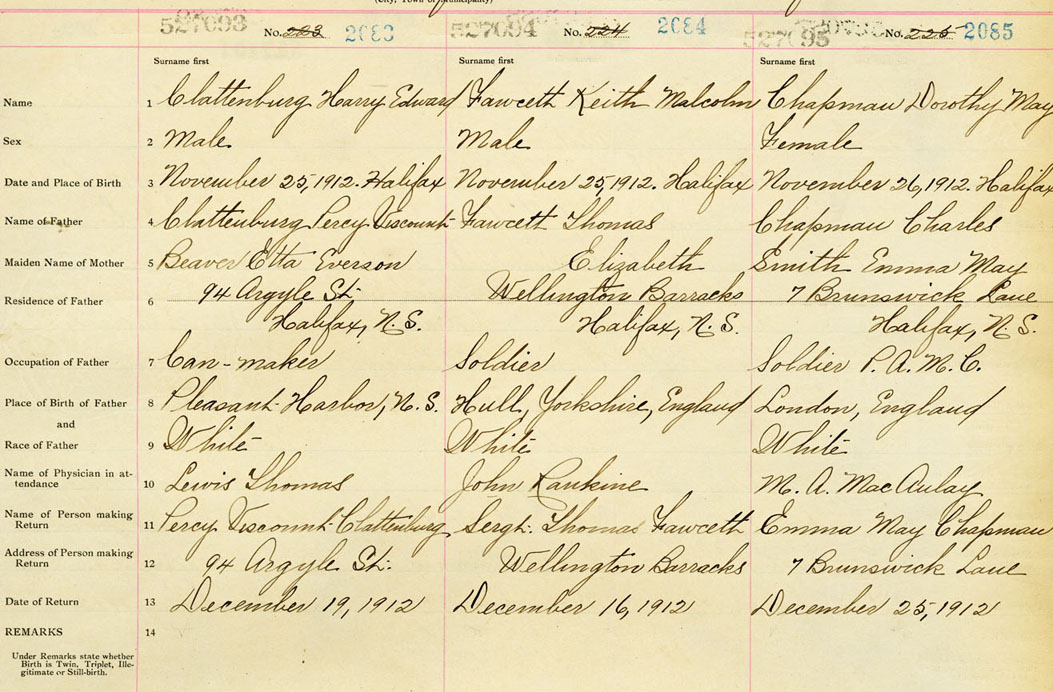 (City, Town or Municipality)
527093 No. 223 2083 527094 No. 224 2084 527095 No. 225 2085
Surname first Surname first Surname first
Name 1 Clattenburg Harry Edward Fawcett Keith Malcolm Chapman Dorothy May
Sex 2 Male Male Female
Date and Place of Birth 3 November 25, 1912. Halifax November 25, 1912. Halifax November 26, 1912. Halifax
Name of Father 4 Clattenburg Percy Viscount Fawcett Thomas Chapman Charles
Maiden Name of Mother 5 Beaver Etta Everson Elizabeth Smith Emma May
Residence of Father 6 94 Argyle St. Wellington Barracks 7 Brunswick Lane
Halifax, N.S. Halifax, N.S. Halifax, N.S.
Occupation of Father 7 Can-maker Soldier Soldier P.A.M.C.
Place of Birth of Father 8 Pleasant Harbor, N.S. Hull, Yorkshire, England London, England
and
Race of Father 9 White White White
Name of Physician in at-
tendance 10 Lewis Thomas John Rankine M. A. MacAulay
Name of Person making
Return 11 Percy Viscount Clattenburg Sergt. Thomas Fawcett Emma May Chapman
Address of Person making
Return 12 94 Argyle St. Wellington Barracks 7 Brunswick Lane
Date of Return 13 December 19, 1912 December 16, 1912 December 25, 1912
REMARKS 14
Under Remarks state whether
Birth is Twin, Triplet, Ille-
gitimate or Still-birth.